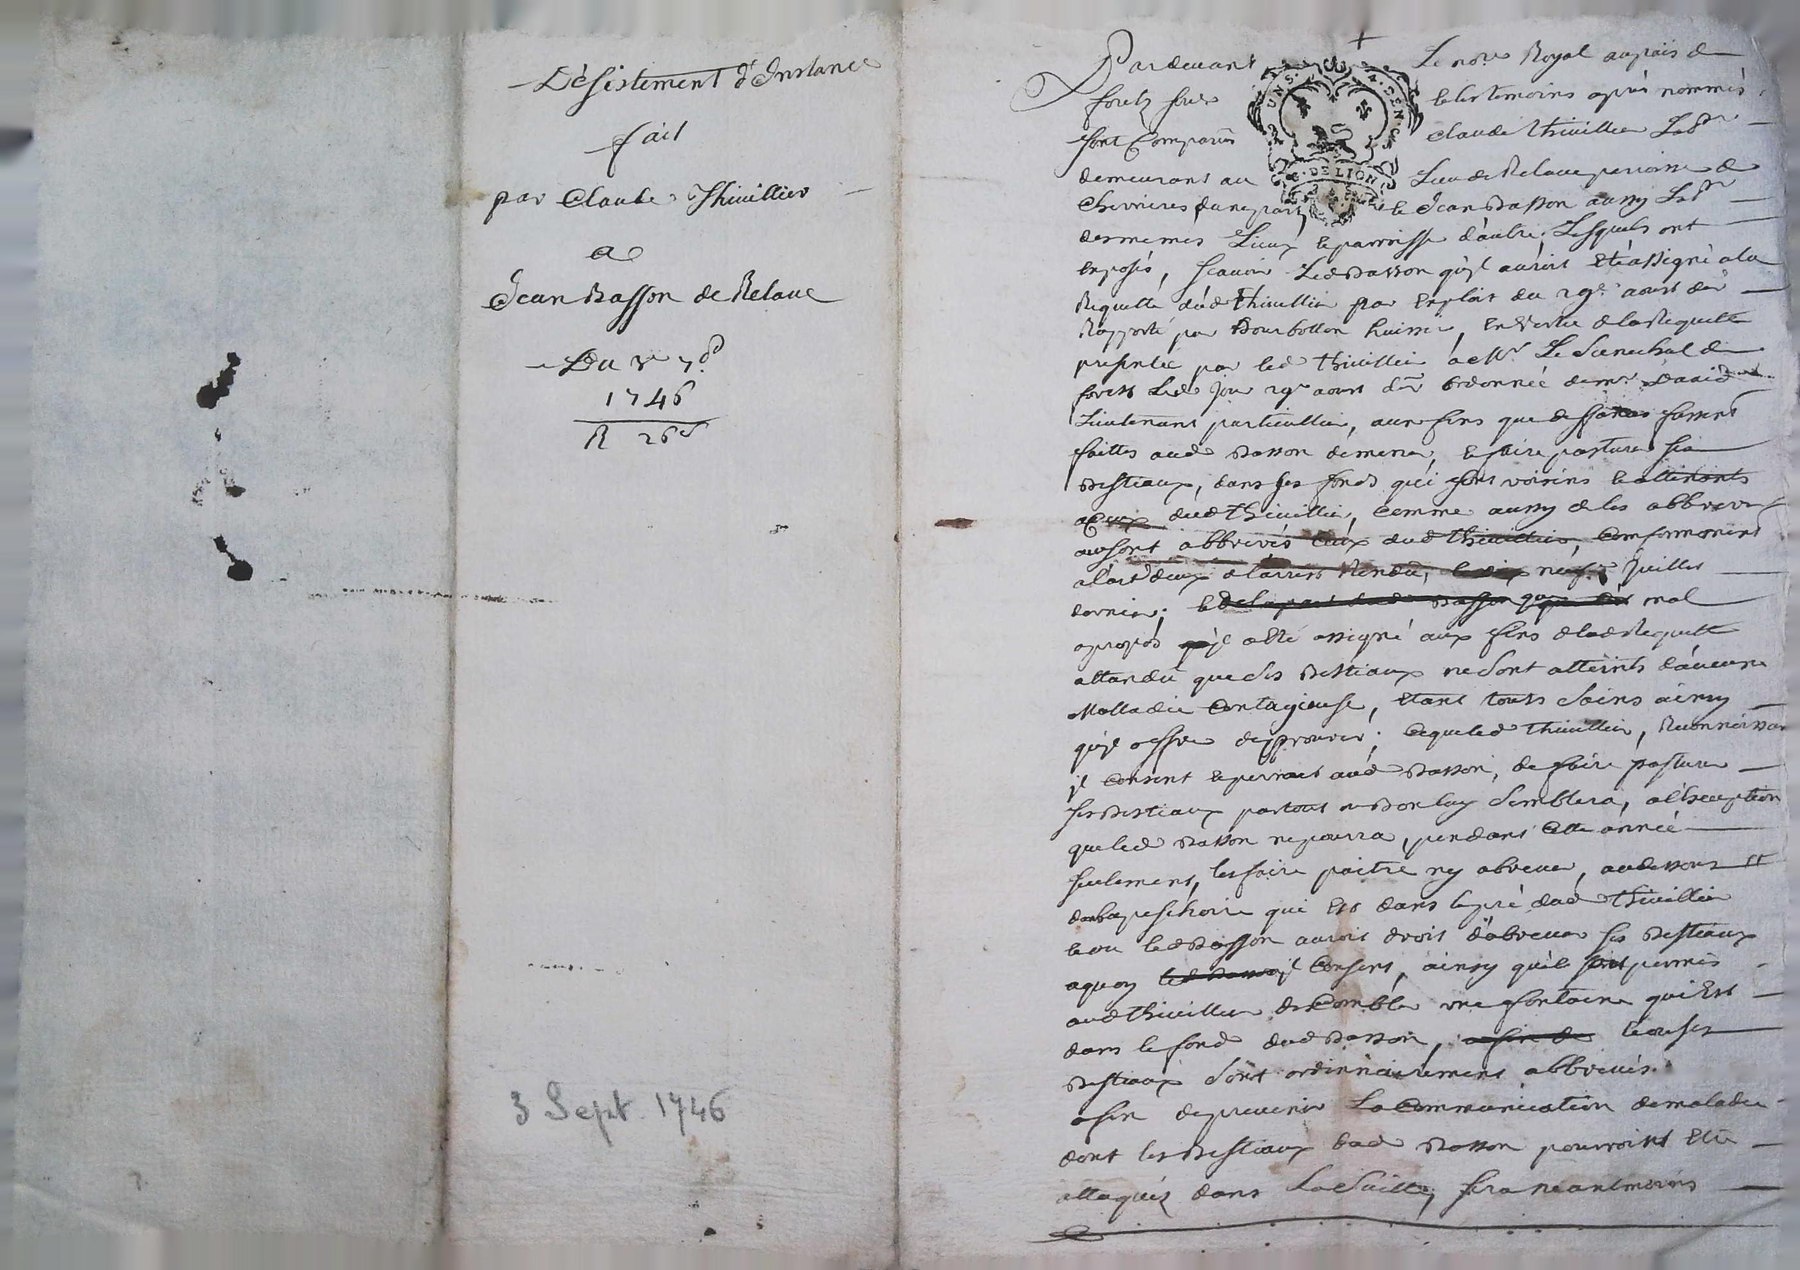 Désistement d'Instance
fait
par Claude Thivillier
a
Jean Basson de Relave
Du 3e 7bre
1746
R 26s
3 Sept. 1746
Pardevant Le nore Royal au païs de
foretz soubs et les temoins aprés nommés
sont Comparus Claude thivillier Labr
demeurant au Lieu de Relave parroisse de
Chevrieres d'une part, et Jean Basson aussy Labr
des memes Lieux et parroisse d'autre, Lesquels ont
exposés, scavoir Led Basson qu'jl auroit Eté assigné a la
Requette dud thivillier par Exploit du 29e aoust der
Rapporté par Bourbollon huissier, En Vertu de la Requette
presentée par led thivillier a Mr Le Senechal de
forets Led jour 29e aoust der ordonnée de mr David
Lieutenant particullier, aux fins que deffances fussent
faittes aud Basson de mener, et faire pasturer ses
Bestiaux, dans ses fonds qui sont voisins et attenants
a Ceux dud thivillier, Comme aussy de les abbrever
ou sont abbrevés Ceux dud thivillier, Conformement
a l'art deux de l'arrest Rendu, le dix neuf Juillet
dernier; et de la part dud Basson que mal
apropos jl a Eté assigné aux fins de lad Requette
attandu que ses Bestiaux ne sont atteints d'aucune
Malladie Contagieuse, Etant touts sains ainsy
qu'jl offre de prouver; Ce que led thivillier, Reconnoissant
jl Consent et permet aud Basson, de faire pasturer
ses Bestiaux partout ou Bon luy Semblera, a l'exception
que led Basson ne pourra, pendant Cette année
seulement, les faire paitre ny abrever, au dessous
de la pescherie qui Est dans le pré dud thivillier
et ou led Basson auroit droit d'abrever ses Bestiaux
a quoy led Basson jl Consent, ainsy qu'il soit permis
aud thivillier de Combler une fontaine qui Est
dans le fond dud Basson, afin de et ou ses
Bestiaux sont ordinnairement abbrevés
afin de prevenir La Communication de maladie
dont les Bestiaux dud Basson pourroint Etre
attaqués dans La Suitte, sera neantmoins